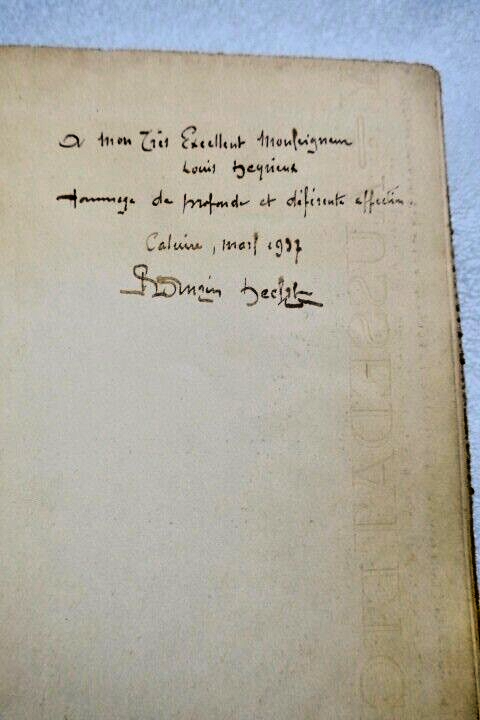 A mon Très Excellent Monseigneur
Louis
Hommage de profonde et déférente affection.
Caluire, mars 1937
Romain